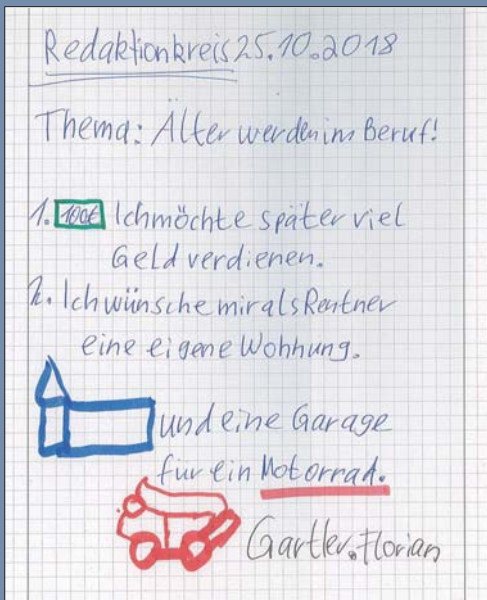 Redaktionkreis 25.10.2018
Thema: Älter werden im Beruf!
1. 100€ Ich möchte später viel
Geld verdienen.
2. Ich wünsche mir als Rentner
eine eigene Wohnung.
und eine Garage
für ein Motorrad.
Gartler, Florian